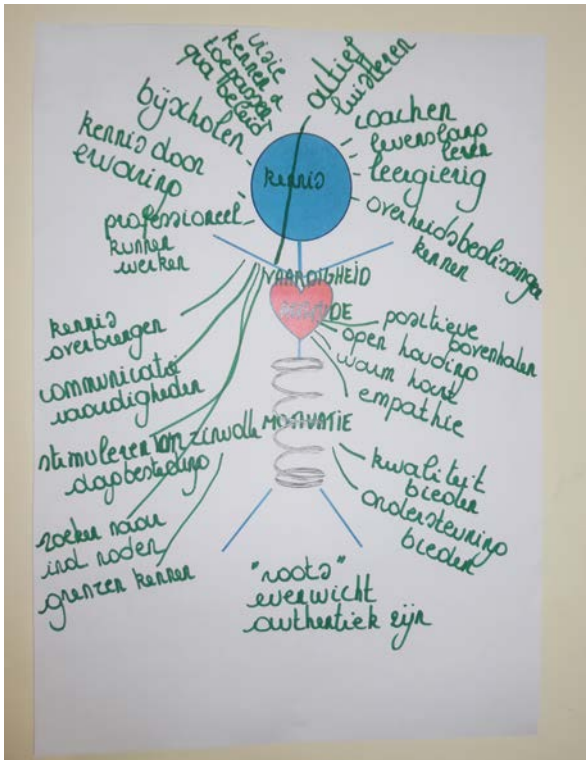 visie
kennen &
toepassen
qua beleid
actief
luisteren
bijscholen
kennis door
ervaring
professioneel
kunnen
werken
kennis
coachen
levenslang
leren
leergierig
overheidsbeslissingen
kennen
VAARDIGHEID
ATTITUDE
kennis
overbrengen
communicatie
vaardigheden
stimuleren tot zinvolle
dagbesteding
zoeken naar
ind noden
grenzen kennen
positieve
bovenhalen
open houding
warm hart
empathie
MOTIVATIE
kwaliteit
bieden
ondersteuning
bieden
"roots"
evenwicht
authentiek zijn